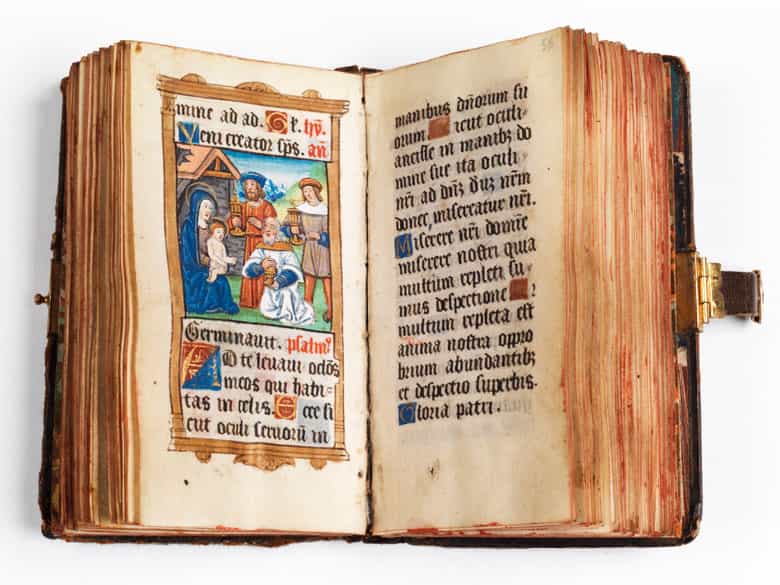 mine ad ad. Gł. hȳ.
Veni creator sp̄s. an̄
Germinauit. psalmꝰ
AD te leuaui oclōs
meos qui habi-
tas in celis. Ecce si
cut oculi seruorū in
manibus dn̄orum su
orum Sicut oculi
ancille in manibꝫ do
mine sue ita oculi
nr̄i ad dn̄ꝫ nr̄m
donec misereatur nr̄i.
Miserere nr̄i domīe
miserere nostri quia
multum repleti su-
mus despectione
multum repleta est
anima nostra oppro
brium abundantibꝫ
et despectio superbis.
Gloria patri.